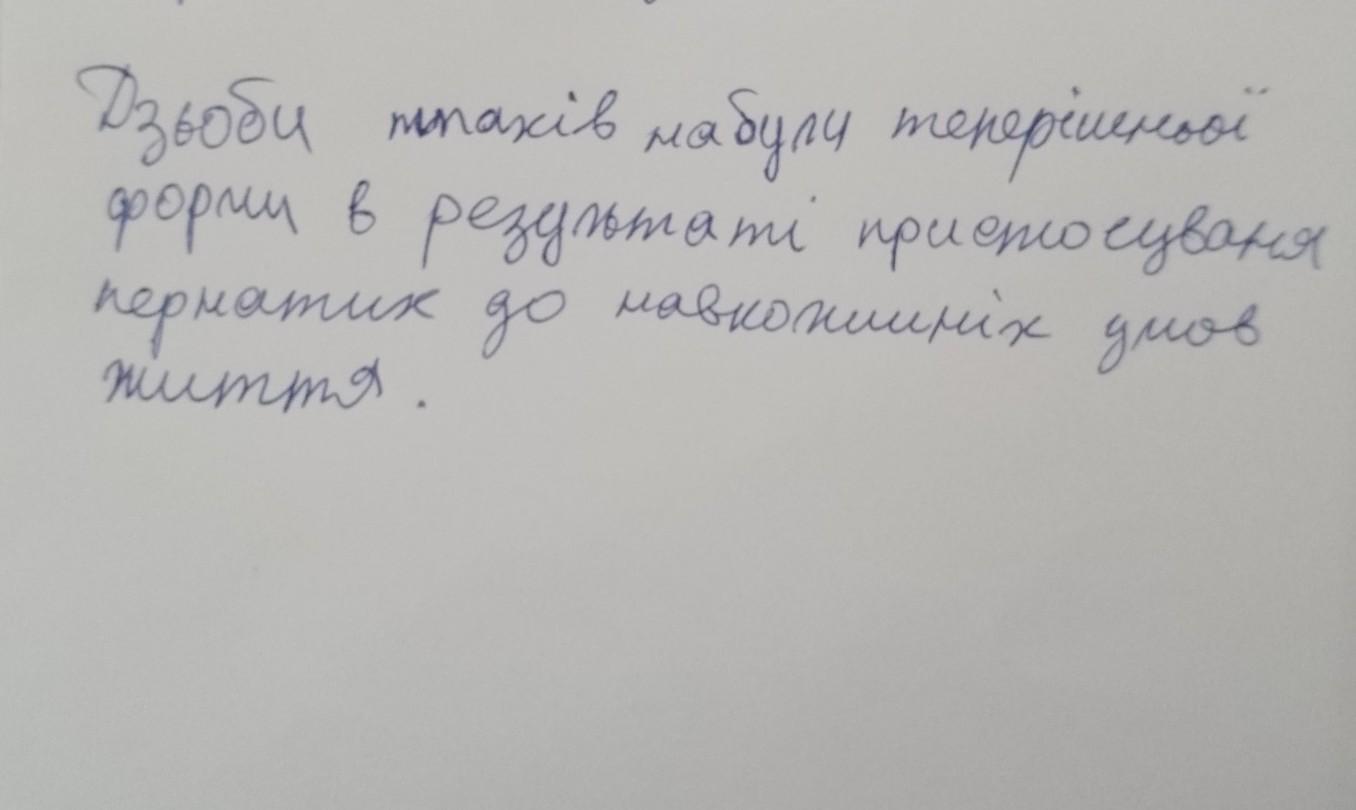 Дзьоби птахів набули теперішньої
форми в результаті пристосуваня
пернатих до навколишніх умов
життя.